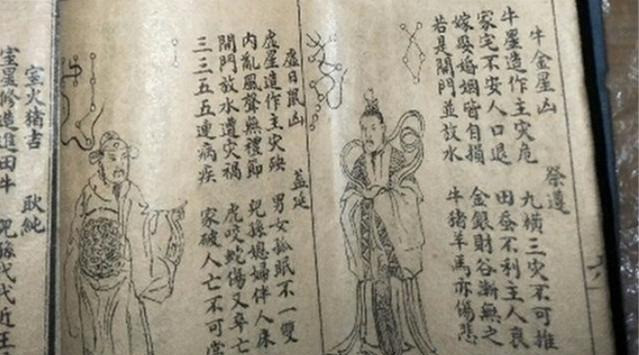 牛金星凶 祭遵
牛星造作主灾危 九横三灾不可推
家宅不安人口退 田蚕不利主人衰
嫁娶婚姻皆自損 金銀財谷漸無之
若是開門並放水 牛猪羊馬亦傷悲
虚日鼠凶 盖延
虚星造作主灾殃 男女孤眠不一雙
内亂風聲無禮節 兒孫媳婦伴人床
開門放水遭灾禍 虎咬蛇傷又卒亡
三三五五連病疾 家破人亡不可當
室火猪吉 耿純
室星修造進田牛 兒孫代代近王